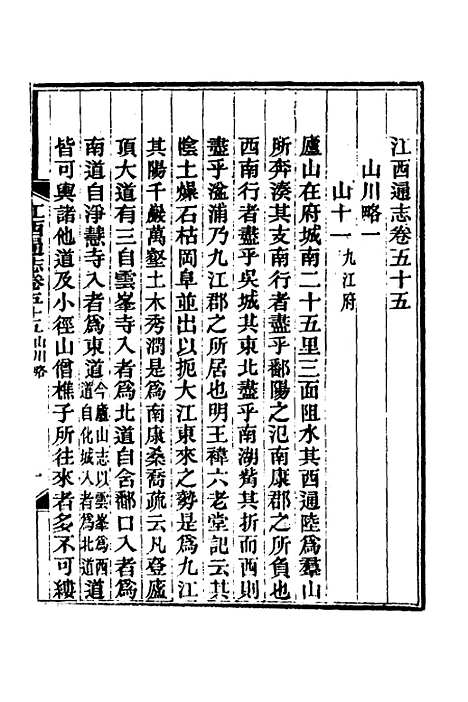 江西通志卷五十五
山川略一
山十一九江府
廬山在府城南二十五里三面阻水其西通陸為羣山
所奔湊其支南行者盡乎鄱陽之氾南康郡之所負也
西南行者盡乎吳城其東北盡乎南湖觜其折而西則
盡乎湓浦乃九江郡之所居也明王禕六老堂記云其
陰土燥石枯岡阜並出以扼大江東來之勢是為九江
其陽千巖萬壑土木秀潤是為南康桑喬疏云凡登廬
頂大道有三自雲峯寺入者為北道自含鄱口入者為
南道自淨慧寺入者為東道今廬山志以雲峯為西道自化城入者為北道
皆可輿諸他道及小徑山僧樵子所往來者多不可縷
江西通志卷五十五山川略
一